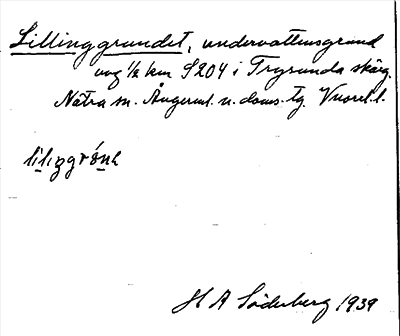 Lillinggrundet, undervattensgrund
ung ½ km S204 i Trysunda skärg.
Nätra sn. Ångerml. n. doms. tg.
H A Söderberg 1939